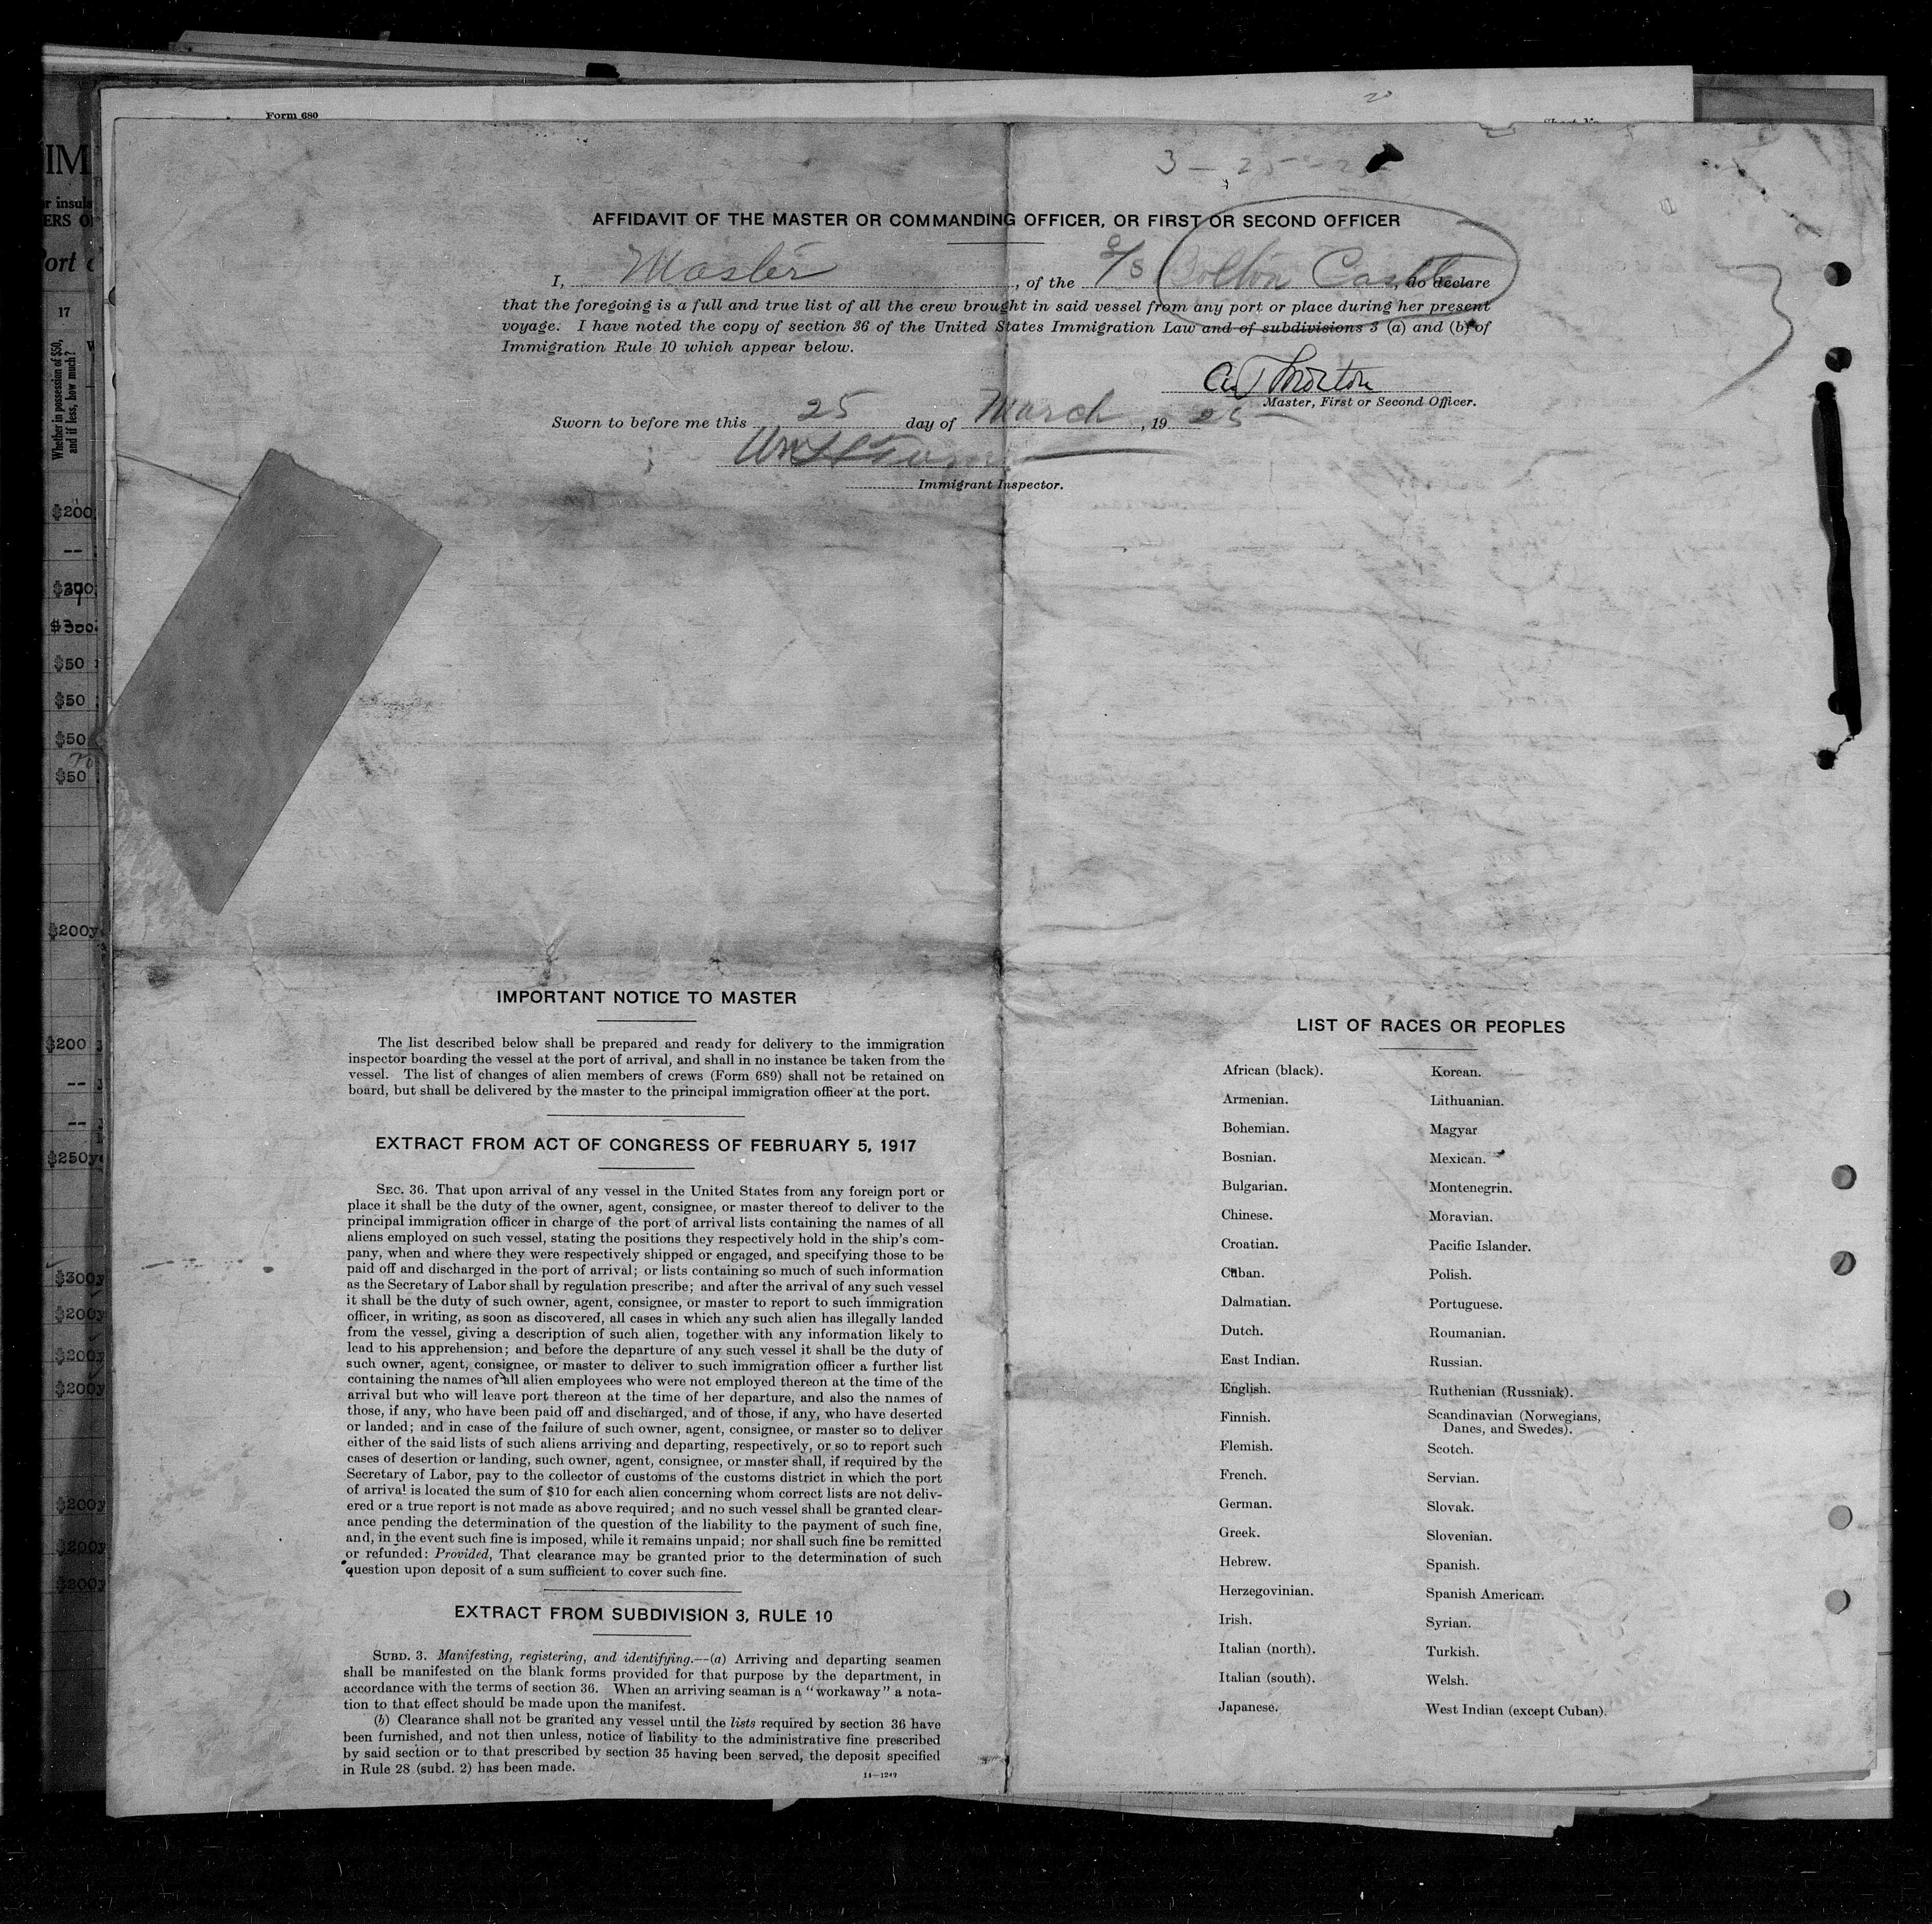 Form 680
3-25-25
AFFIDAVIT OF THE MASTER OR COMMANDING OFFICER, OR FIRST OR SECOND OFFICER
I, Master, of the S/S Bolton Castle, do declare
that the foregoing is a full and true list of all the crew brought in said vessel from any port or place during her present
voyage. I have noted the copy of section 36 of the United States Immigration Law and of subdivisions 3 (a) and (b) of
Immigration Rule 10 which appear below.
Morton
Master, First or Second Officer.
Sworn to before me this 25 day of March, 19 25
Immigrant Inspector.
IMPORTANT NOTICE TO MASTER
The list described below shall be prepared and ready for delivery to the immigration
inspector boarding the vessel at the port of arrival, and shall in no instance be taken from the
vessel. The list of changes of alien members of crews (Form 689) shall not be retained on
board, but shall be delivered by the master to the principal immigration officer at the port.
EXTRACT FROM ACT OF CONGRESS OF FEBRUARY 5, 1917
SEC. 36. That upon arrival of any vessel in the United States from any foreign port or
place it shall be the duty of the owner, agent, consignee, or master thereof to deliver to the
principal immigration officer in charge of the port of arrival lists containing the names of all
aliens employed on such vessel, stating the positions they respectively hold in the ship's com-
pany, when and where they were respectively shipped or engaged, and specifying those to be
paid off and discharged in the port of arrival; or lists containing so much of such information
as the Secretary of Labor shall by regulation prescribe; and after the arrival of any such vessel
it shall be the duty of such owner, agent, consignee, or master to report to such immigration
officer, in writing, as soon as discovered, all cases in which any such alien has illegally landed
from the vessel, giving a description of such alien, together with any information likely to
lead to his apprehension; and before the departure of any such vessel it shall be the duty of
such owner, agent, consignee, or master to deliver to such immigration officer a further list
containing the names of all alien employees who were not employed thereon at the time of the
arrival but who will leave port thereon at the time of her departure, and also the names of
those, if any, who have been paid off and discharged, and of those, if any, who have deserted
or landed; and in case of the failure of such owner, agent, consignee, or master so to deliver
either of the said lists of such aliens arriving and departing, respectively, or so to report such
cases of desertion or landing, such owner, agent, consignee, or master shall, if required by the
Secretary of Labor, pay to the collector of customs of the customs district in which the port
of arrival is located the sum of $10 for each alien concerning whom correct lists are not deliv-
ered or a true report is not made as above required; and no such vessel shall be granted clear-
ance pending the determination of the question of the liability to the payment of such fine,
and, in the event such fine is imposed, while it remains unpaid; nor shall such fine be remitted
or refunded: Provided, That clearance may be granted prior to the determination of such
question upon deposit of a sum sufficient to cover such fine.
EXTRACT FROM SUBDIVISION 3, RULE 10
SUBD. 3. Manifesting, registering, and identifying.—(a) Arriving and departing seamen
shall be manifested on the blank forms provided for that purpose by the department, in
accordance with the terms of section 36. When an arriving seaman is a "workaway" a nota-
tion to that effect should be made upon the manifest.
(b) Clearance shall not be granted any vessel until the lists required by section 36 have
been furnished, and not then unless, notice of liability to the administrative fine prescribed
by said section or to that prescribed by section 35 having been served, the deposit specified
in Rule 28 (subd. 2) has been made.
14—1249
LIST OF RACES OR PEOPLES
African (black).
Armenian.
Bohemian.
Bosnian.
Bulgarian.
Chinese.
Croatian.
Cuban.
Dalmatian.
Dutch.
East Indian.
English.
Finnish.
Flemish.
French.
German.
Greek.
Hebrew.
Herzegovinian.
Irish.
Italian (north).
Italian (south).
Japanese.
Korean.
Lithuanian.
Magyar
Mexican.
Montenegrin.
Moravian.
Pacific Islander.
Polish.
Portuguese.
Roumanian.
Russian.
Ruthenian (Russniak).
Scandinavian (Norwegians,
Danes, and Swedes).
Scotch.
Servian.
Slovak.
Slovenian.
Spanish.
Spanish American.
Syrian.
Turkish.
Welsh.
West Indian (except Cuban).
17
Whether in possession of $50,
and if less, how much?
$200
$50
$50
$50
$50
$200
$200
$250
$300
$200
$200
$200
$200
$200
$200